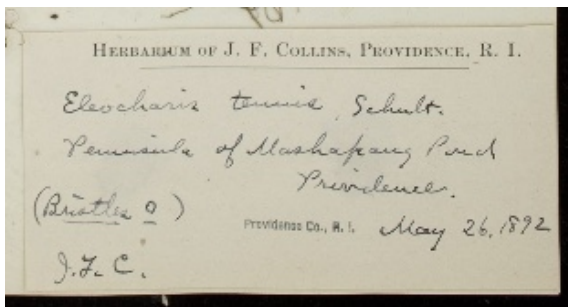 HERBARIUM OF J. F. COLLINS, PROVIDENCE, R. I.
Eleocharis tenuis, Schult.
Peninsula of Mashapaug Pond
Providence.
(Bristles 0)
Providence Co., R. I. May 26, 1892
J. F. C.